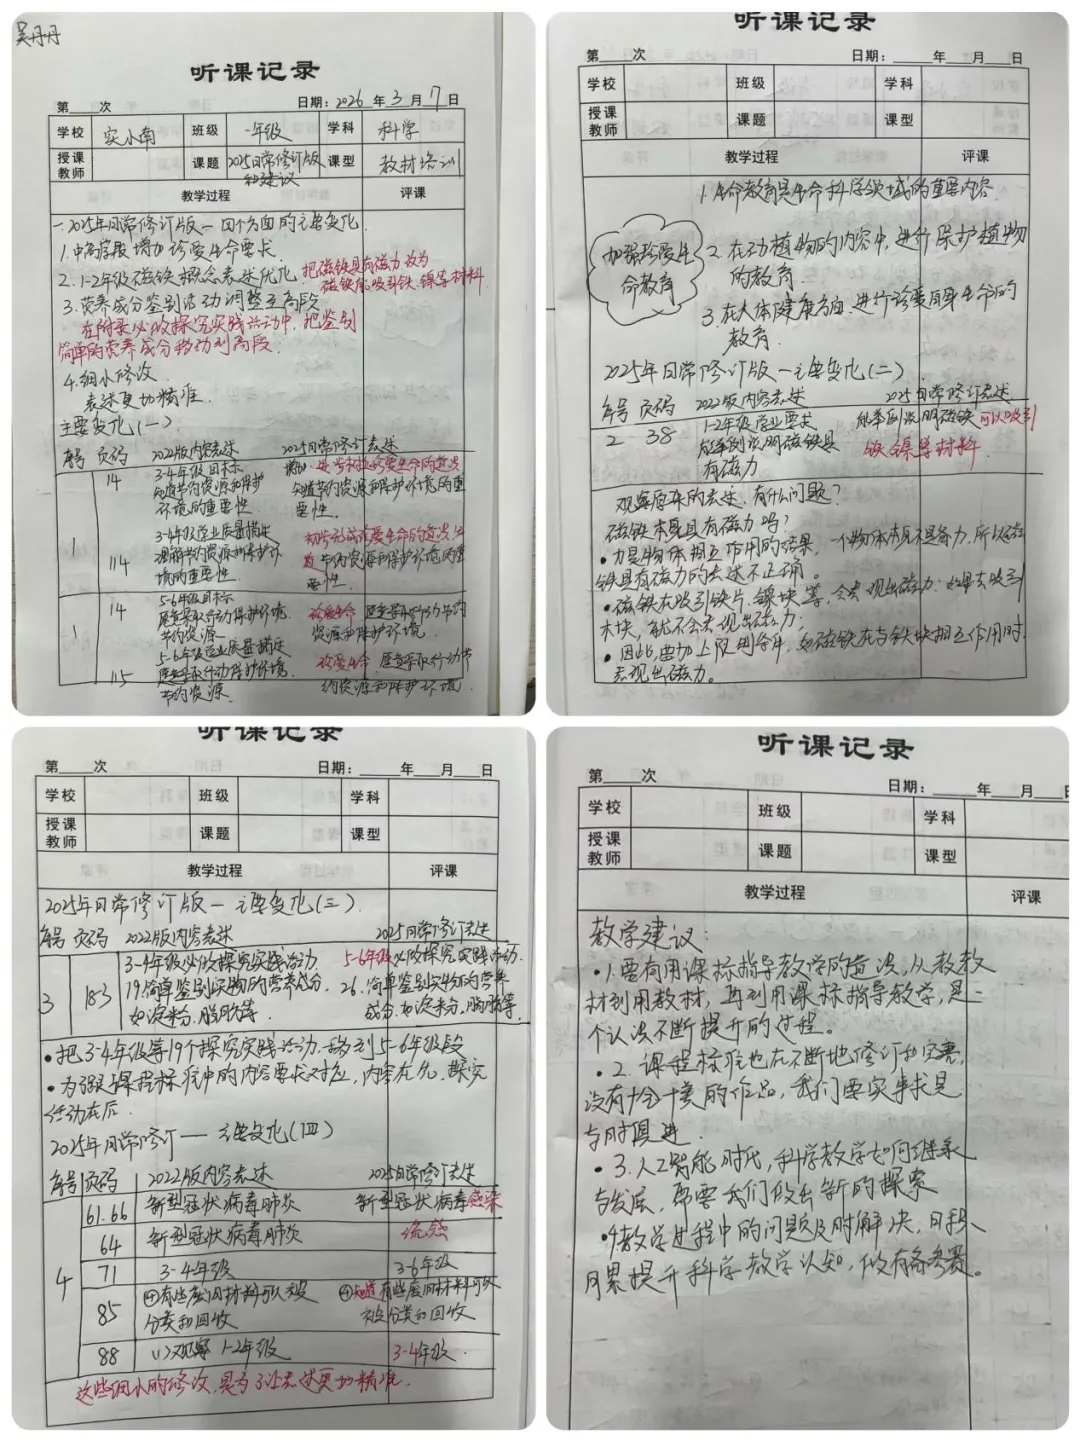 吴丹丹
听课记录
第 次 日期：2026年3月7日
学校 实小南 班级 一年级 学科 科学
授课教师 课题 2025日常修订版和建议 课型 教材培训
教学过程 评课
一.2025年日常修订版—四个方面的主要变化
1.中高学段增加珍爱生命要求.
2.1-2年级磁铁概念表述优化. 把磁铁具有磁力改为
磁铁能吸引铁.镍等材料
3.营养成分鉴别活动调整至高段
在附录必做探究实践活动中,把鉴别
简单的营养成分移动到高段.
4.细小修改.
表述更加精准.
主要变化(一).
序号 页码 2022版内容表述 2025日常修订表述
1 14 3-4年级目标
知道节约资源和保护
环境的重要性
增加:
知道节约资源和保护环境的重
要性.
114 3-4年级学业质量描述
理解节约资源和保护环
境的重要性.
初步形成珍爱生命的意识
节约资源和保护环境的重
要性
1 14 5-6年级目标
愿意采取行动保护环境.
节约资源—
珍爱生命 愿意采取行动节约
资源和保护环境.
115 5-6年级学业质量描述
愿意采取行动保护环境.
节约资源.
珍爱生命 愿意采取行动节
约资源和保护环境.
听课记录
第 次 日期： 年 月 日
学校 班级 学科
授课教师 课题 课型
教学过程 评课
加强珍爱生
命教育
1.生命教育是生命科学领域的重要内容.
2.在动植物的内容中,进行保护植物
的教育.
3.在人体健康方面,进行珍爱自身生命的
教育.
2025年日常修订版—主要变化(二)
序号 页码 2022版内容表述 2025日常修订表述
2 38 1-2年级学业要求
能举例说明磁铁具
有磁力
能举例说明磁铁可以吸引
铁.镍等材料.
观察原来的表述,有什么问题?
磁铁本身具有磁力吗?
•力是物体相互作用的结果,一个物体本身不具备力,所以磁
铁具有磁力的表述不正确。
•磁铁在吸引铁片.镍块等,会表现出磁力:如果去吸引
木块,就不会表现出磁力;
•因此要加上限制条件,如磁铁在与铁块相互作用时,
表现出磁力。
听课记录
第 次 日期： 年 月 日
学校 班级 学科
授课教师 课题 课型
教学过程 评课
2025年日常修订版—主要变化(三).
序号 页码 2022版内容表述 2025日常修订表述
3 183 3-4年级必做探究实践活动.
19.简单鉴别食物的营养成分.
如淀粉.脂肪等.
5-6年级必做探究实践活动.
26.简单鉴别食物的营养
成分,如淀粉.脂肪等.
•把3-4年级第19个探究实践活动,移到5-6年级段
•为强调课程标准中的内容要求对应,内容在先.探究
活动在后.
2025年日常修订——主要变化(四)
序号 页码 2022版内容表述 2025日常修订表述
4 61.66 新型冠状病毒肺炎 新型冠状病毒感染
64 新型冠状病毒肺炎 流感
71 3-4年级 3-6年级
85 ④有些废旧材料可以被
分类和回收
④知道有些废旧材料可以
被分类和回收
88 (1)观察 1-2年级 3-4年级.
这些细小的修改,是为了让表述更加精准.
听课记录
第 次 日期： 年 月 日
学校 班级 学科
授课教师 课题 课型
教学过程 评课
教学建议:
•1.要有用课标指导教学的意识,从教教
材到用教材,再到用课标指导教学,是一
个认识不断提升的过程。
•2.课程标准也在不断地修订和完善,
没有十全十美的作品,我们要实事求是
与时俱进.
•3.人工智能时代,科学教学如何继承
与发展,需要我们做出新的探索
•4教学进程中的问题及时解决,日积
月累提升科学教学认知,做有备参赛。